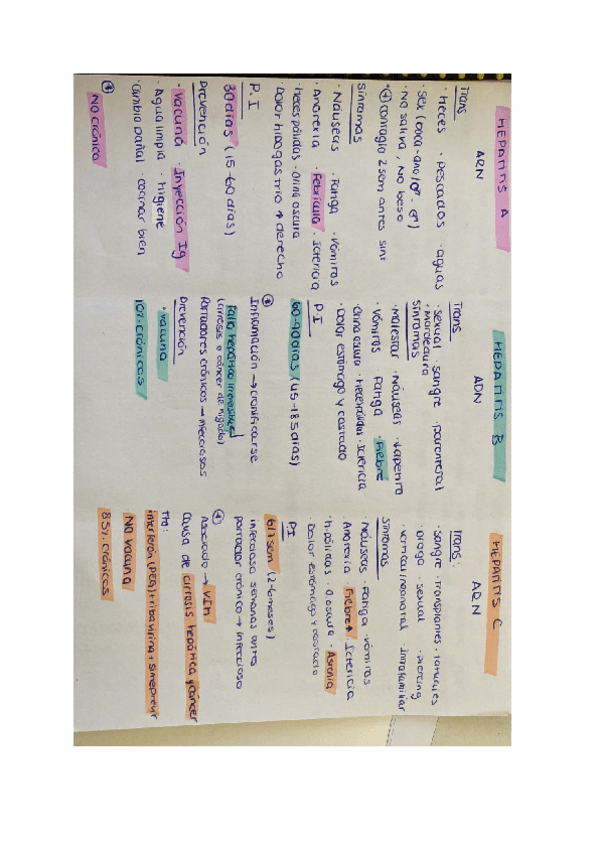 HEPATITIS A
ARN
Trans
· Heces · Pescados · aguas
· sex (boca-ano/♂-♂)
· No saliva, No beso
· ⊕ contagio 2 sem antes sint
Síntomas
· Náuseas · Fatiga · Vómitos
· Anorexia · Febrícula · Ictericia
· Heces pálidas · Orina oscura
· Dolor hipogastrio + derecho
P.I
30 días (15-60 días)
Prevención
· Vacuna · Inyección Ig
· Agua limpia · Higiene
· Cambio pañal · cocinar bien
⊕
NO crónica
HEPATITIS B
ADN
Trans
· sexual · sangre · parenteral
· Mordedura
Síntomas
· Malestar · Náuseas · Iapetito
· Vómitos · Fatiga · Fiebre
· Orina oscura · Heces pálidas · Ictericia
· Dolor estómago y costado
P.I
60-90 días (45-185 días)
⊕
Inflamación → cronificarse
Fallo hepático irreversible
(cirrosis o cáncer de hígado)
Portadores crónicos → infecciosos
Prevención
· Vacuna
10% crónicas
HEPATITIS C
ARN
Trans:
· sangre · transplantes · tatuajes
· Droga · sexual · piercing
· vertical/neonatal · Intrafamiliar
Síntomas
· Náuseas · Fatiga · vómitos
· Anorexia · Fiebre↑ · Ictericia
· h. pálidas · o. oscura · Astenia
· Dolor estómago y costado
PI
6/7 sem (2-6 meses)
infecciosa semanas antes
portador crónico → infeccioso
⊕
Asociado → VIH
Causa de cirrosis hepática y cáncer
Tto:
interferón (PEG) + ribavirina + simeprevir
NO vacuna
85% crónicas